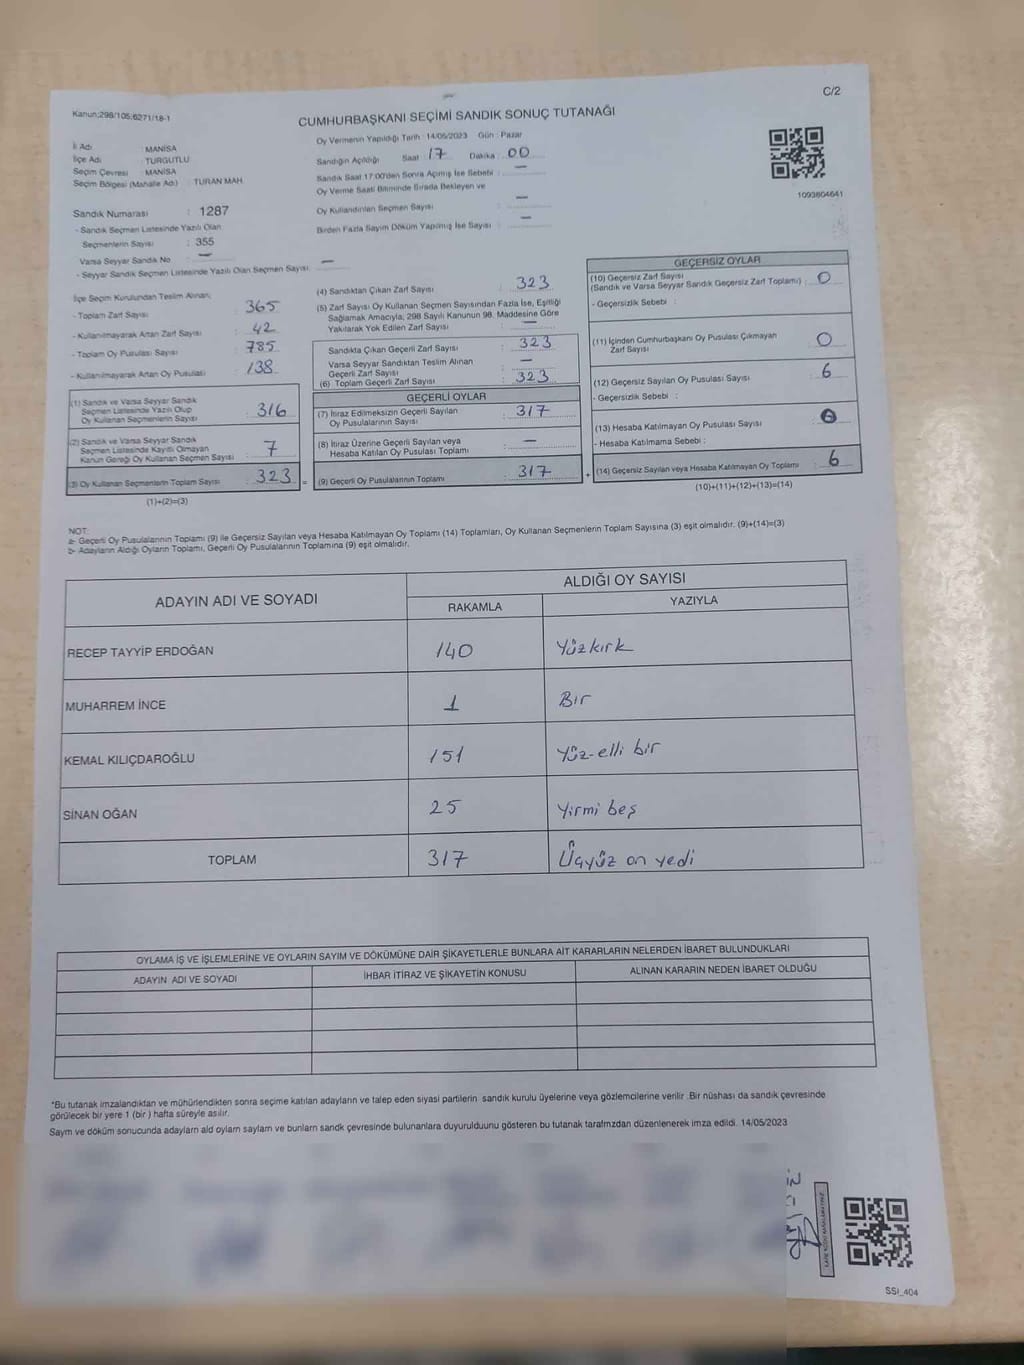 C/2
Kanun;298/105;6271/18-1
CUMHURBAŞKANI SEÇİMİ SANDIK SONUÇ TUTANAĞI
İl Adı : MANİSA
İlçe Adı : TURGUTLU
Seçim Çevresi : MANİSA
Seçim Bölgesi (Mahalle Adı) : TURAN MAH.
Oy Vermenin Yapıldığı Tarih : 14/05/2023 Gün : Pazar
Sandığın Açıldığı Saat 17 Dakika : 00
Sandık Saat 17:00'den Sonra Açılmış İse Sebebi : —
Oy Verme Saati Bitiminde Sırada Bekleyen ve
Oy Kullandırılan Seçmen Sayısı : —
Birden Fazla Sayım Döküm Yapılmış İse Sayısı : —
1093804641
Sandık Numarası : 1287
- Sandık Seçmen Listesinde Yazılı Olan
Seçmenlerin Sayısı : 355
Varsa Seyyar Sandık No : —
- Seyyar Sandık Seçmen Listesinde Yazılı Olan Seçmen Sayısı : —
İlçe Seçim Kurulundan Teslim Alınan;
- Toplam Zarf Sayısı : 365
- Kullanılmayarak Artan Zarf Sayısı : 42
- Toplam Oy Pusulası Sayısı : 785
- Kullanılmayarak Artan Oy Pusulası : 138
(1) Sandık ve Varsa Seyyar Sandık
Seçmen Listesinde Yazılı Olup
Oy Kullanan Seçmenlerin Sayısı : 316
(2) Sandık ve Varsa Seyyar Sandık
Seçmen Listesinde Kayıtlı Olmayan
Kanun Gereği Oy Kullanan Seçmen Sayısı : 7
(3) Oy Kullanan Seçmenlerin Toplam Sayısı : 323
(1)+(2)=(3)
(4) Sandıktan Çıkan Zarf Sayısı : 323
(5) Zarf Sayısı Oy Kullanan Seçmen Sayısından Fazla İse, Eşitliği
Sağlamak Amacıyla, 298 Sayılı Kanunun 98. Maddesine Göre
Yakılarak Yok Edilen Zarf Sayısı : —
Sandıkta Çıkan Geçerli Zarf Sayısı : 323
Varsa Seyyar Sandıktan Teslim Alınan
Geçerli Zarf Sayısı : —
(6) Toplam Geçerli Zarf Sayısı : 323
GEÇERLİ OYLAR
(7) İtiraz Edilmeksizin Geçerli Sayılan
Oy Pusulalarının Sayısı : 317
(8) İtiraz Üzerine Geçerli Sayılan veya
Hesaba Katılan Oy Pusulası Toplamı : —
(9) Geçerli Oy Pusulalarının Toplamı : 317
GEÇERSİZ OYLAR
(10) Geçersiz Zarf Sayısı
(Sandık ve Varsa Seyyar Sandık Geçersiz Zarf Toplamı) : 0
- Geçersizlik Sebebi :
(11) İçinden Cumhurbaşkanı Oy Pusulası Çıkmayan
Zarf Sayısı : 0
(12) Geçersiz Sayılan Oy Pusulası Sayısı : 6
- Geçersizlik Sebebi :
(13) Hesaba Katılmayan Oy Pusulası Sayısı :
- Hesaba Katılmama Sebebi :
(14) Geçersiz Sayılan veya Hesaba Katılmayan Oy Toplamı : 6
(10)+(11)+(12)+(13)=(14)
NOT:
a- Geçerli Oy Pusulalarının Toplamı (9) ile Geçersiz Sayılan veya Hesaba Katılmayan Oy Toplamı (14) Toplamları, Oy Kullanan Seçmenlerin Toplam Sayısına (3) eşit olmalıdır. (9)+(14)=(3)
b- Adayların Aldığı Oyların Toplamı, Geçerli Oy Pusulalarının Toplamına (9) eşit olmalıdır.
ADAYIN ADI VE SOYADI
ALDIĞI OY SAYISI
RAKAMLA YAZIYLA
RECEP TAYYİP ERDOĞAN 140 Yüzkırk
MUHARREM İNCE 1 Bir
KEMAL KILIÇDAROĞLU 151 Yüz-elli bir
SİNAN OĞAN 25 Yirmi beş
TOPLAM 317 Üçyüz on yedi
OYLAMA İŞ VE İŞLEMLERİNE VE OYLARIN SAYIM VE DÖKÜMÜNE DAİR ŞİKAYETLERLE BUNLARA AİT KARARLARIN NELERDEN İBARET BULUNDUKLARI
ADAYIN ADI VE SOYADI İHBAR İTİRAZ VE ŞİKAYETİN KONUSU ALINAN KARARIN NEDEN İBARET OLDUĞU
*Bu tutanak imzalandıktan ve mühürlendikten sonra seçime katılan adayların ve talep eden siyasi partilerin sandık kurulu üyelerine veya gözlemcilerine verilir .Bir nüshası da sandık çevresinde
görülecek bir yere 1 (bir ) hafta süreyle asılır.
Sayım ve döküm sonucunda adayların ald oyların sayıları ve bunların sandk çevresinde bulunanlara duyurulduunu gösteren bu tutanak tarafmzdan düzenlenerek imza edildi. 14/05/2023
SSI_404